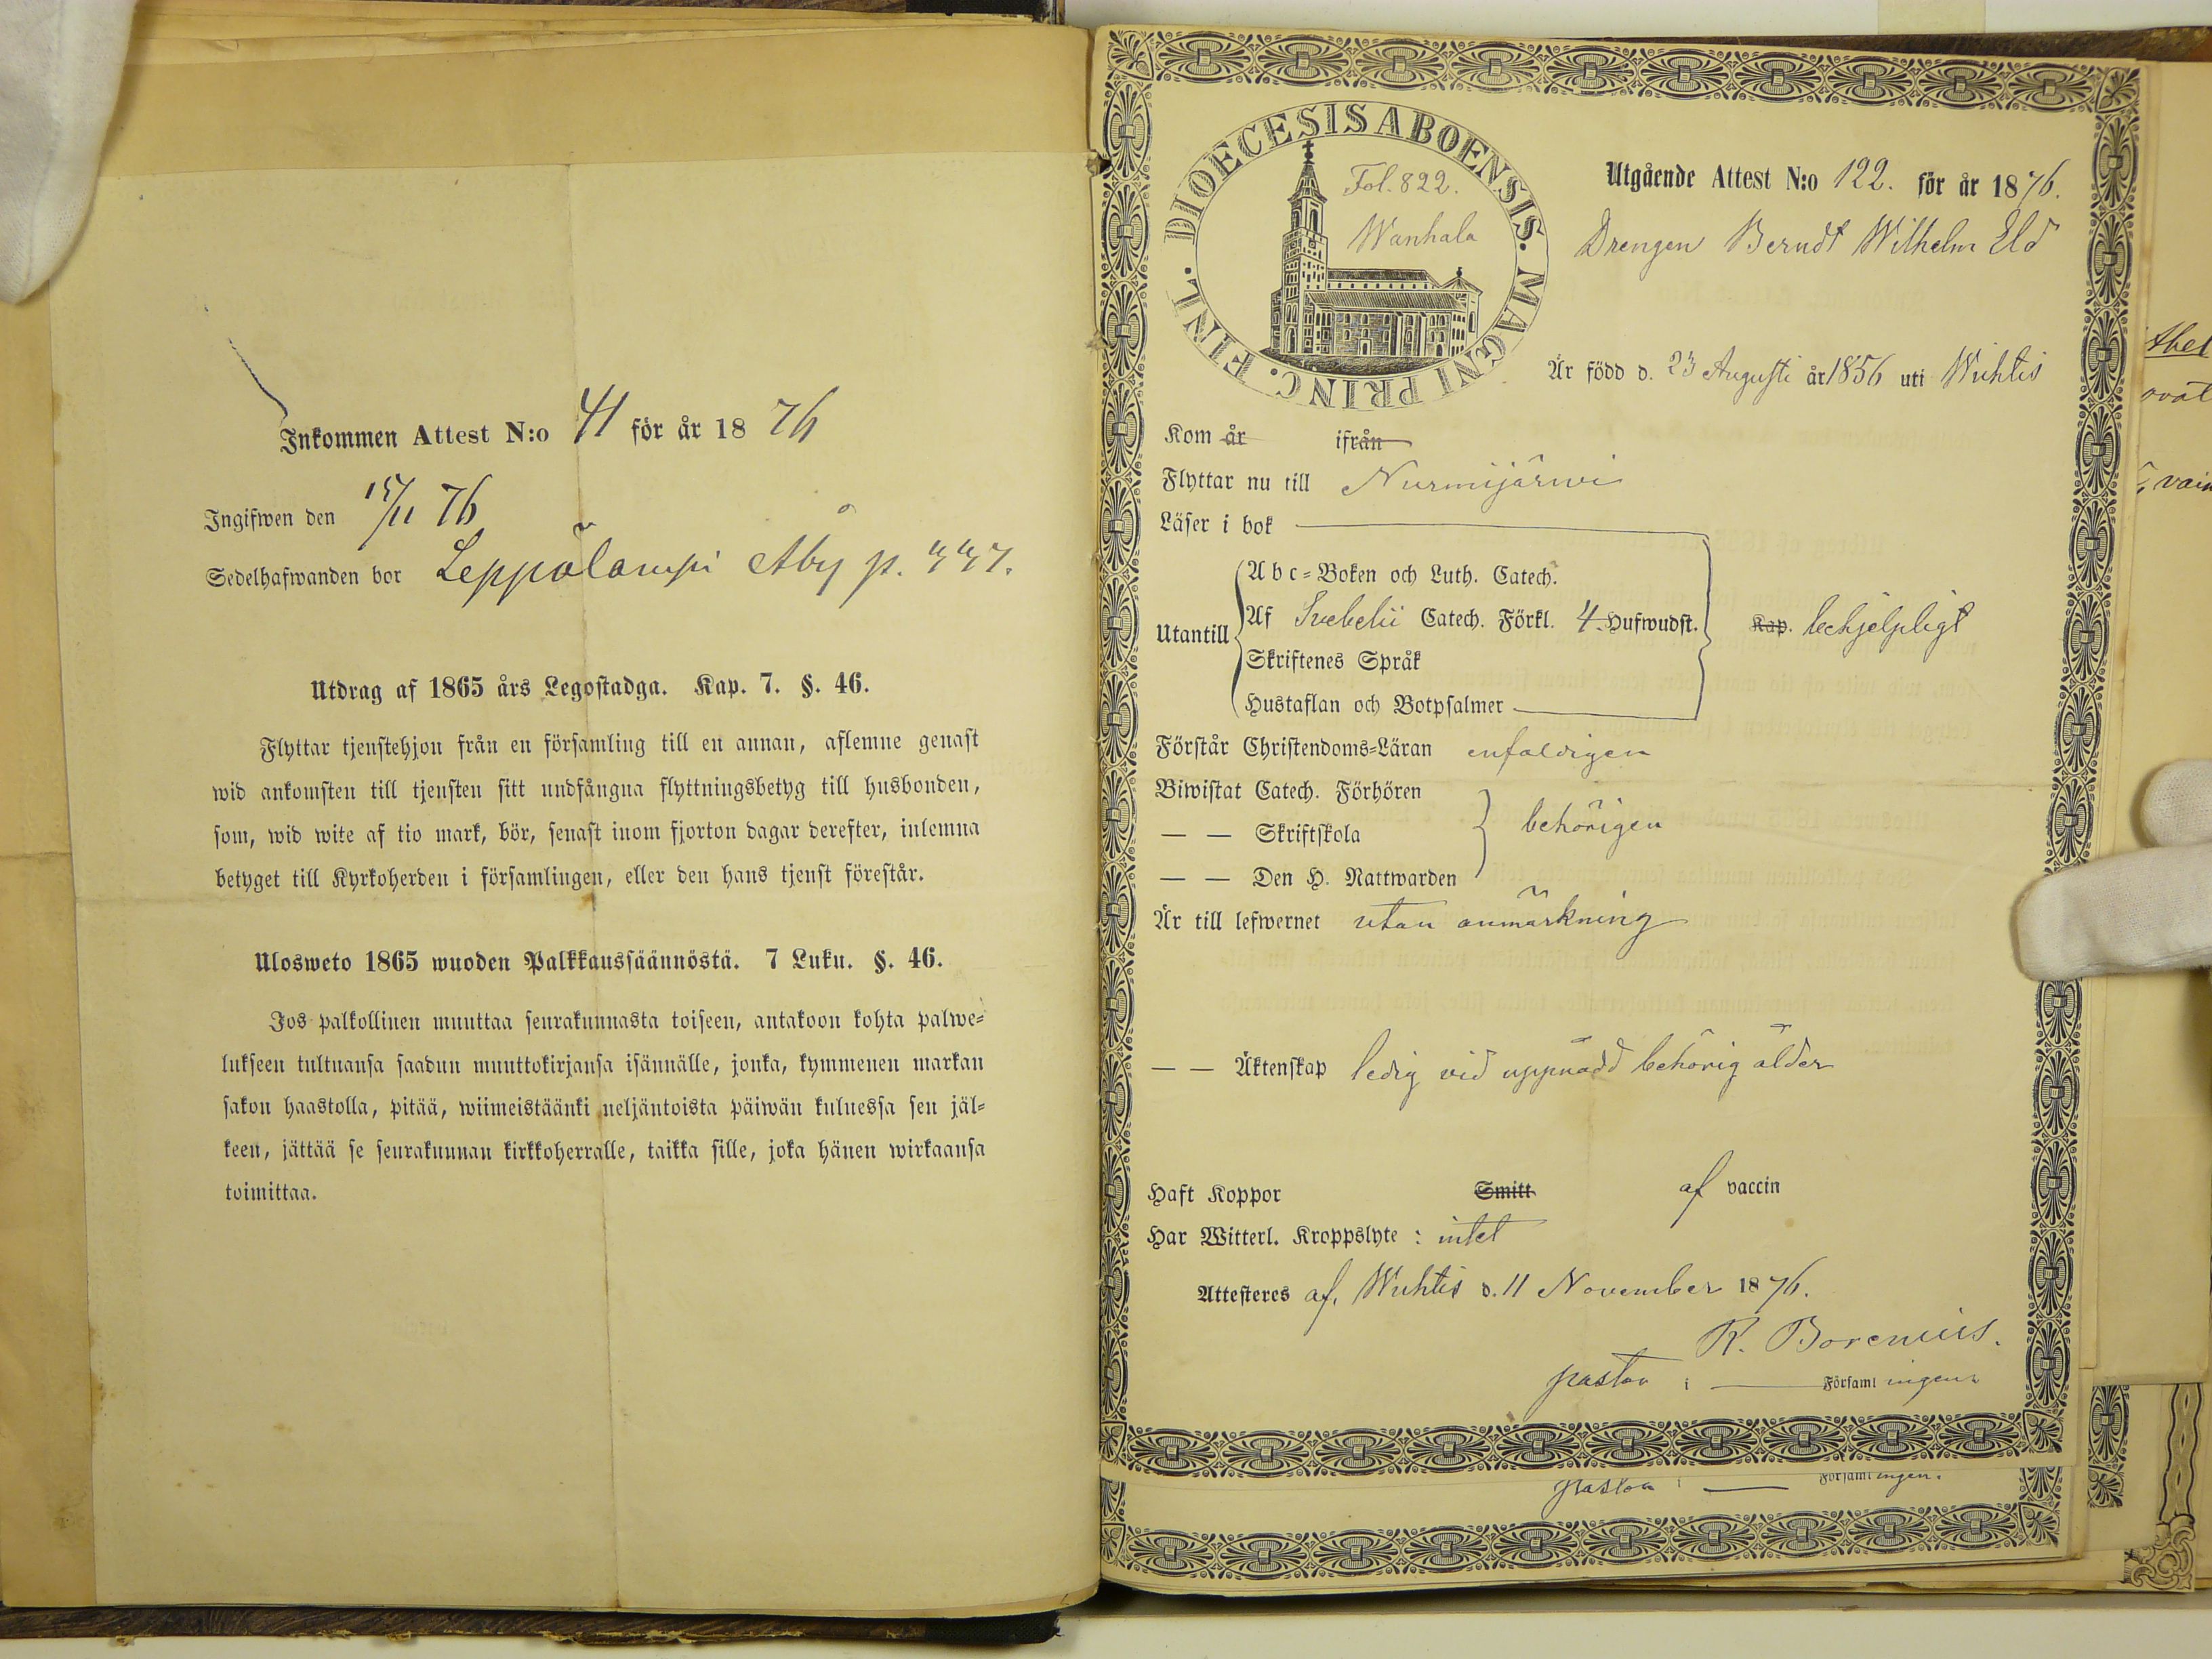 Inkommen Attest N:o 41 för år 1876
Ingifwen den 15/11 76
Sedelhafwanden bor Leppälampi Åby p. 447.
Utdrag af 1865 års Legostadga. Kap. 7. §. 46.
Flyttar tjenstehjon från en församling till en annan, aflemne genast
wid ankomsten till tjensten sitt undfångna flyttningsbetyg till husbonden,
som, wid wite af tio mark, bör, senast inom fjorton dagar derefter, inlemna
betyget till Kyrkoherden i församlingen, eller den hans tjenst förestår.
Ulosweto 1865 wuoden Palkkaussäännöstä. 7 Luku. §. 46.
Jos palkollinen muuttaa seurakunnasta toiseen, antakoon kohta palwe-
lukseen tultuansa saadun muuttokirjansa isännälle, jonka, kymmenen markan
sakon haastolla, pitää, wiimeistäänki neljäntoista päiwän kuluessa sen jäl-
keen, jättää se seurakunnan kirkkoherralle, taikka sille, joka hänen wirkaansa
toimittaa.
DIOECESIS ABOENSIS. MAGNI PRINC. FINL.
Fol. 822.
Wanhala
Utgående Attest N:o 122. för år 1876.
Drengen Berndt Wilhelm Eld
Är född d. 23 Augusti år 1856 uti Wichtis
Kom år ifrån
Flyttar nu till Nurmijärwi
Läser i bok
Utantill
A b c-Boken och Luth. Catech.
Af Svebelii Catech. Förkl. 4. Hufwudst. Kap. behjelpligt
Skriftenes Språk
Hustaflan och Botpsalmer
Förstår Christendoms-Läran enfaldigen
Biwistat Catech. Förhören
— — Skriftskola behörigen
— — Den H. Nattwarden
Är till lefwernet utan anmärkning
— — Äktenskap ledig vid uppnådd behörig ålder
Haft Koppor Smitt af vaccin
Har Witterl. Kroppslyte : intet
Attesteres af, Wichtis d. 11 November 1876.
R. Borenius.
pastor i — Församlingen.
pastor i — Församlingen.